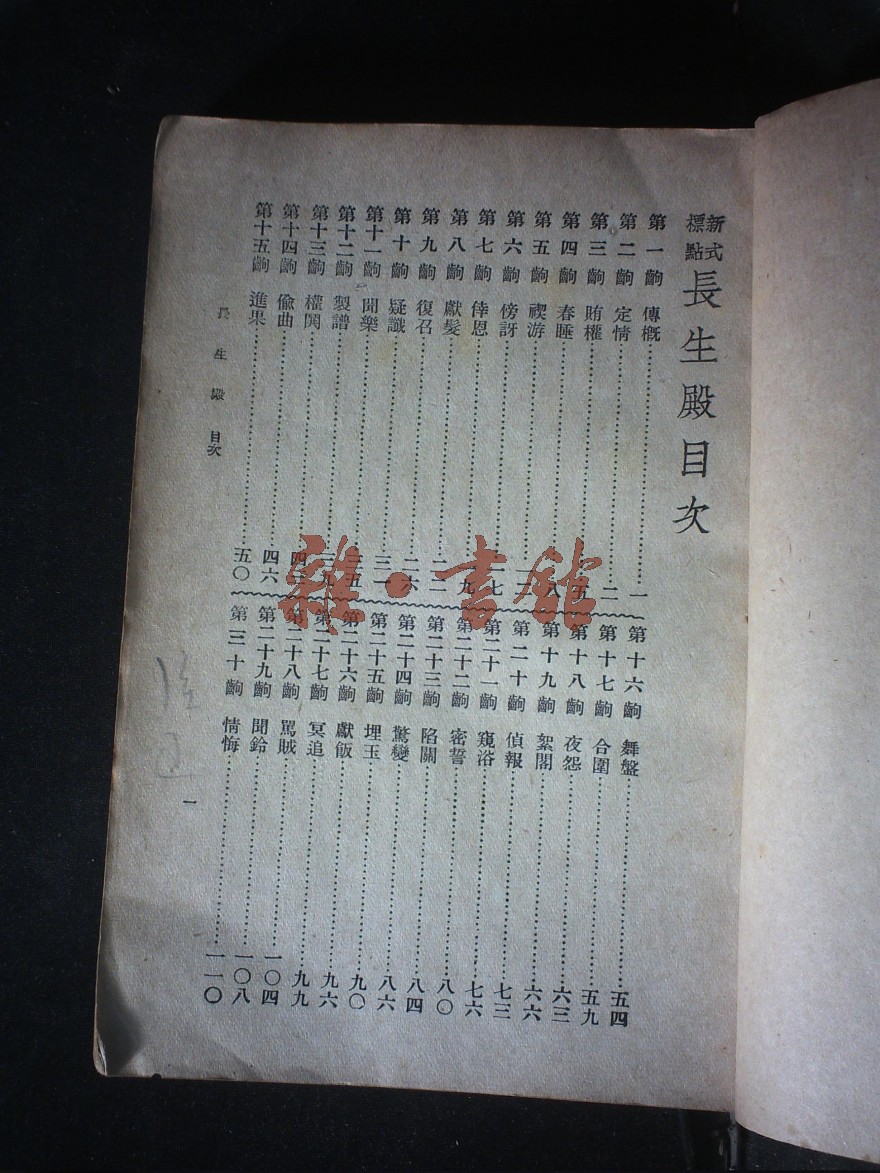 新式標點 長生殿目次
第一齣 傳概 一
第二齣 定情 二
第三齣 賄權 五
第四齣 春睡 八
第五齣 禊游
第六齣 傍訝 七
第七齣 倖恩 九
第八齣 獻髮
第九齣 復召 二六
第十齣 疑讖 三一
第十一齣 聞樂 三五
第十二齣 製譜 三九
第十三齣 權鬨
第十四齣 偸曲 四六
第十五齣 進果 五〇
第十六齣 舞盤 五四
第十七齣 合圍 五九
第十八齣 夜怨 六三
第十九齣 絮閣 六六
第二十齣 偵報 七三
第二十一齣 窺浴 七六
第二十二齣 密誓 八〇
第二十三齣 陷關 八四
第二十四齣 驚變 八六
第二十五齣 埋玉 九〇
第二十六齣 獻飯 九六
第二十七齣 冥追 九九
第二十八齣 罵賊 一〇四
第二十九齣 聞鈴 一〇八
第三十齣 情悔 一一〇
長生殿 目次
一
雜·書館